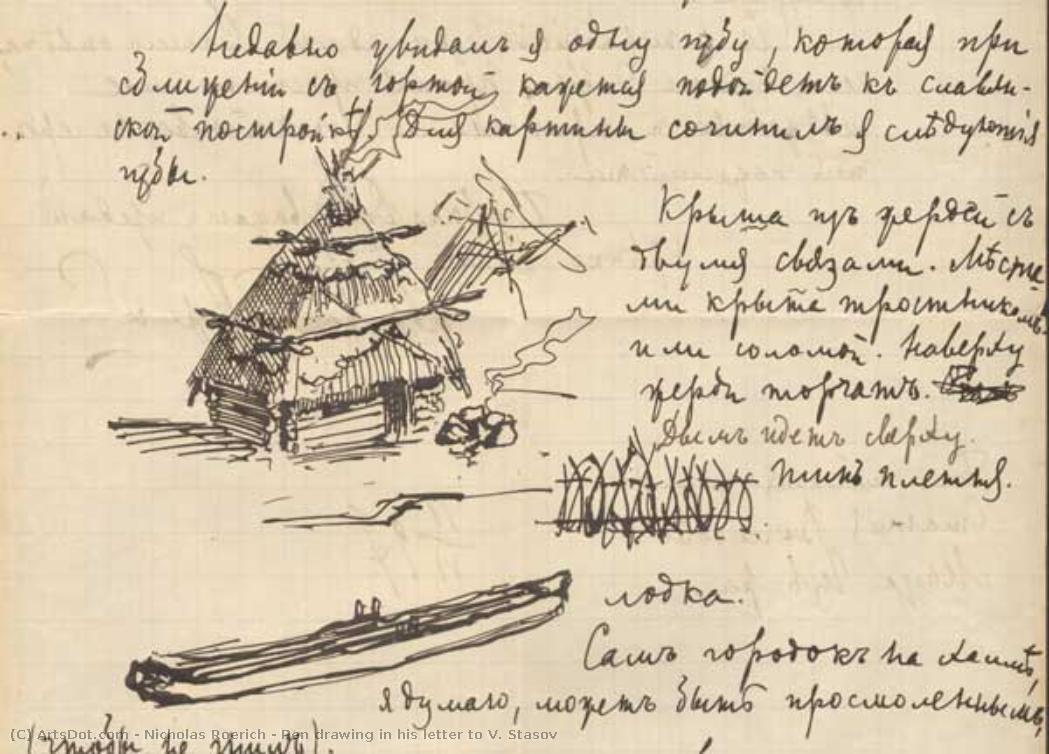 Недавно увидалъ я одну избу, которая при
сближеніи съ юртой кажется подойдетъ къ славян-
ской постройкѣ. Для картины сочинилъ я слѣдующія
избы.
Крыша изъ жердей съ
двумя связами. Мѣста-
ми крыта тростникомъ
или соломой. Наверху
жерди торчатъ.
Дымъ идетъ сверху.
Типъ плетня.
лодка.
Самъ городокъ на холмѣ,
я думаю, можетъ быть просмоленнымъ,
(чтобы не гнилъ).
(C) ArtsDot.com - Nicholas Roerich - Pen drawing in his letter to V. Stasov